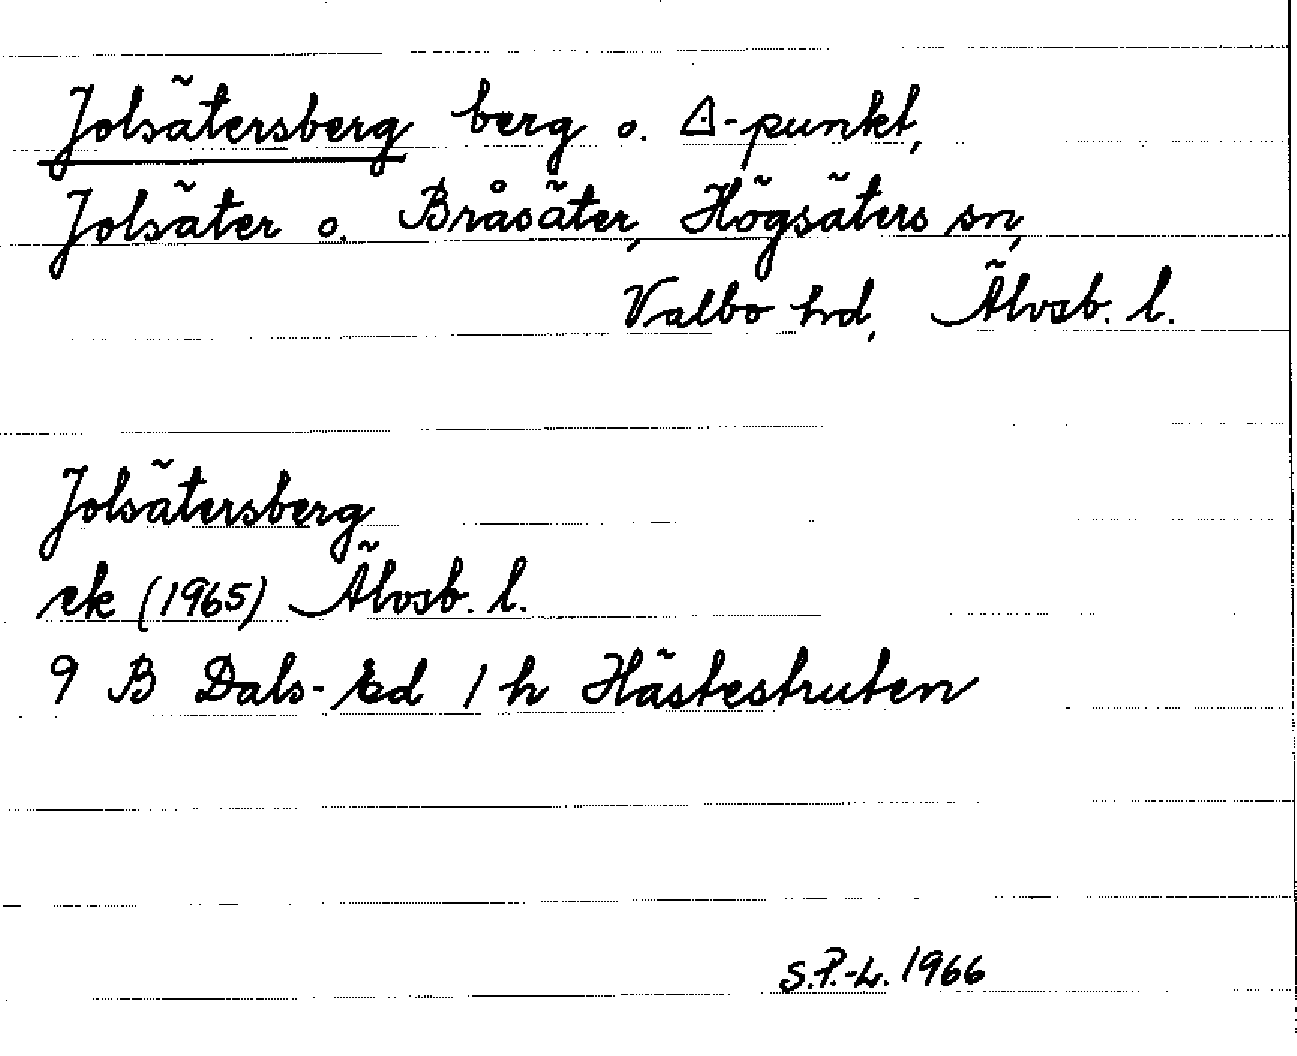 Jolsätersberg berg o. △-punkt,
Jolsäter o. Bråsäter, Högsäters sn,
Valbo hd, Älvsb. l.
Jolsätersberg
ek (1965) Älvsb. l.
9 B Dals-Ed 1 h Hästestruten
S.P.-L. 1966